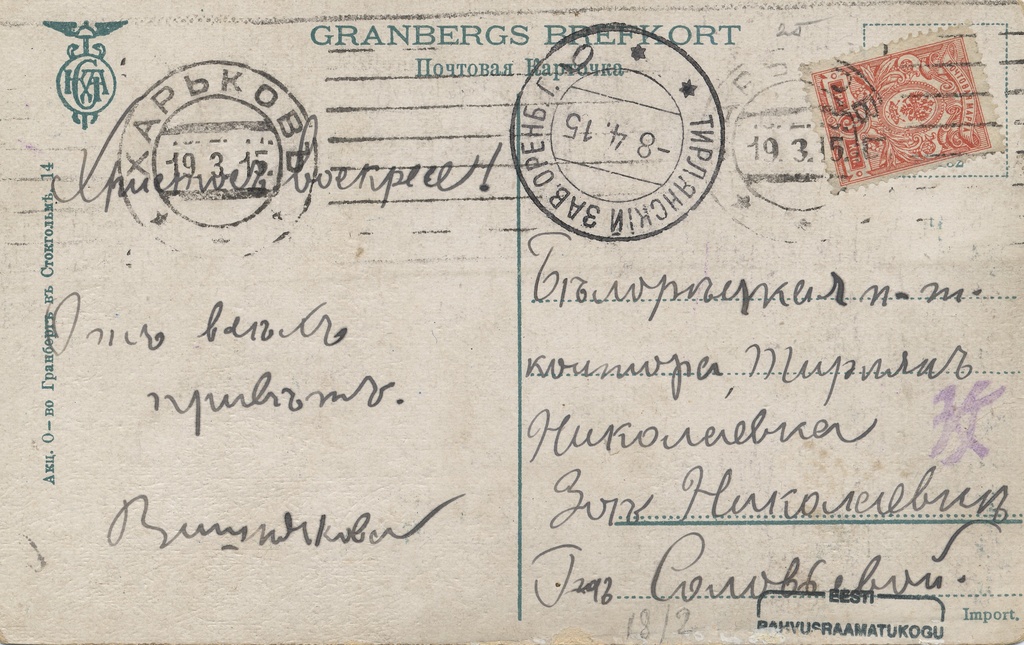 GRANBERGS BREFKORT
Почтовая Карточка
ХАРЬКОВЪ
19.3.15
ТИРЛЯНСКІЙ ЗАВ. ОРЕНБ. Г.
-8.4.15
19.3.15
25
Акц. О-во Гранбергъ въ Стокгольмѣ. 14
Христосъ Воскресе!
привѣтъ.
Вишнякова
Бѣлорѣцкая п.-т.
контора, Тирлянъ
Николаевка
Николаевнѣ
Г-жѣ Соловьевой.
18/2
EESTI
RAHVUSRAAMATUKOGU
Import.